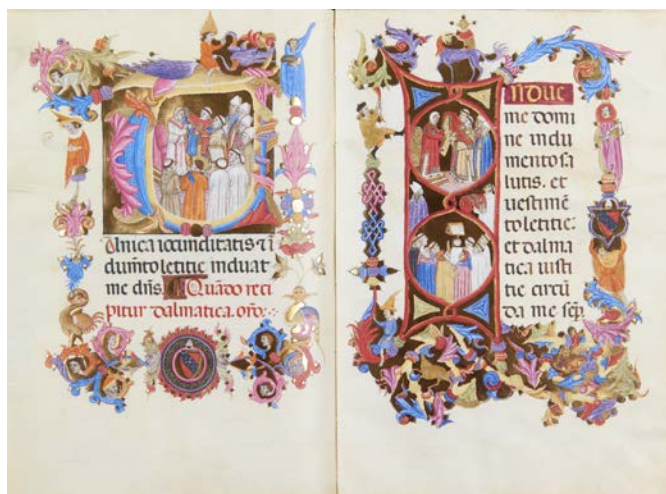 unica iocunditatis ⁊ ī
dumto letitie induat
me dñs. Quãdo reci
pitur dalmatica. orõ.
Indue
me domi
ne indu
mento sa
lutis. et
uestimẽ
to letitie:
et dalma
tica iusti
tie circũ
da me sẽp.